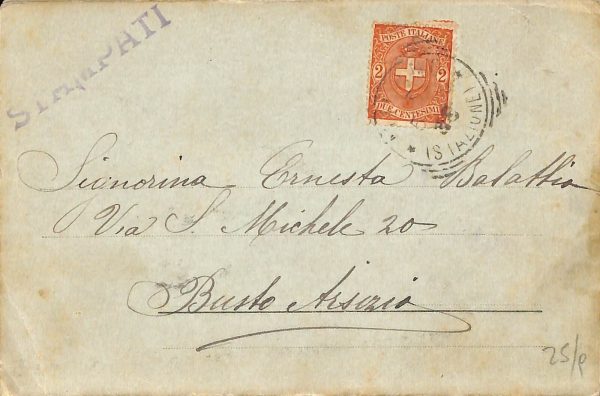 STAMPATI
POSTE ITALIANE
2 2
DUE CENTESIMI
(STAZIONE)
Signorina Ernesta Balattia
Via S. Michele 20
Busto Arsizio
25/p